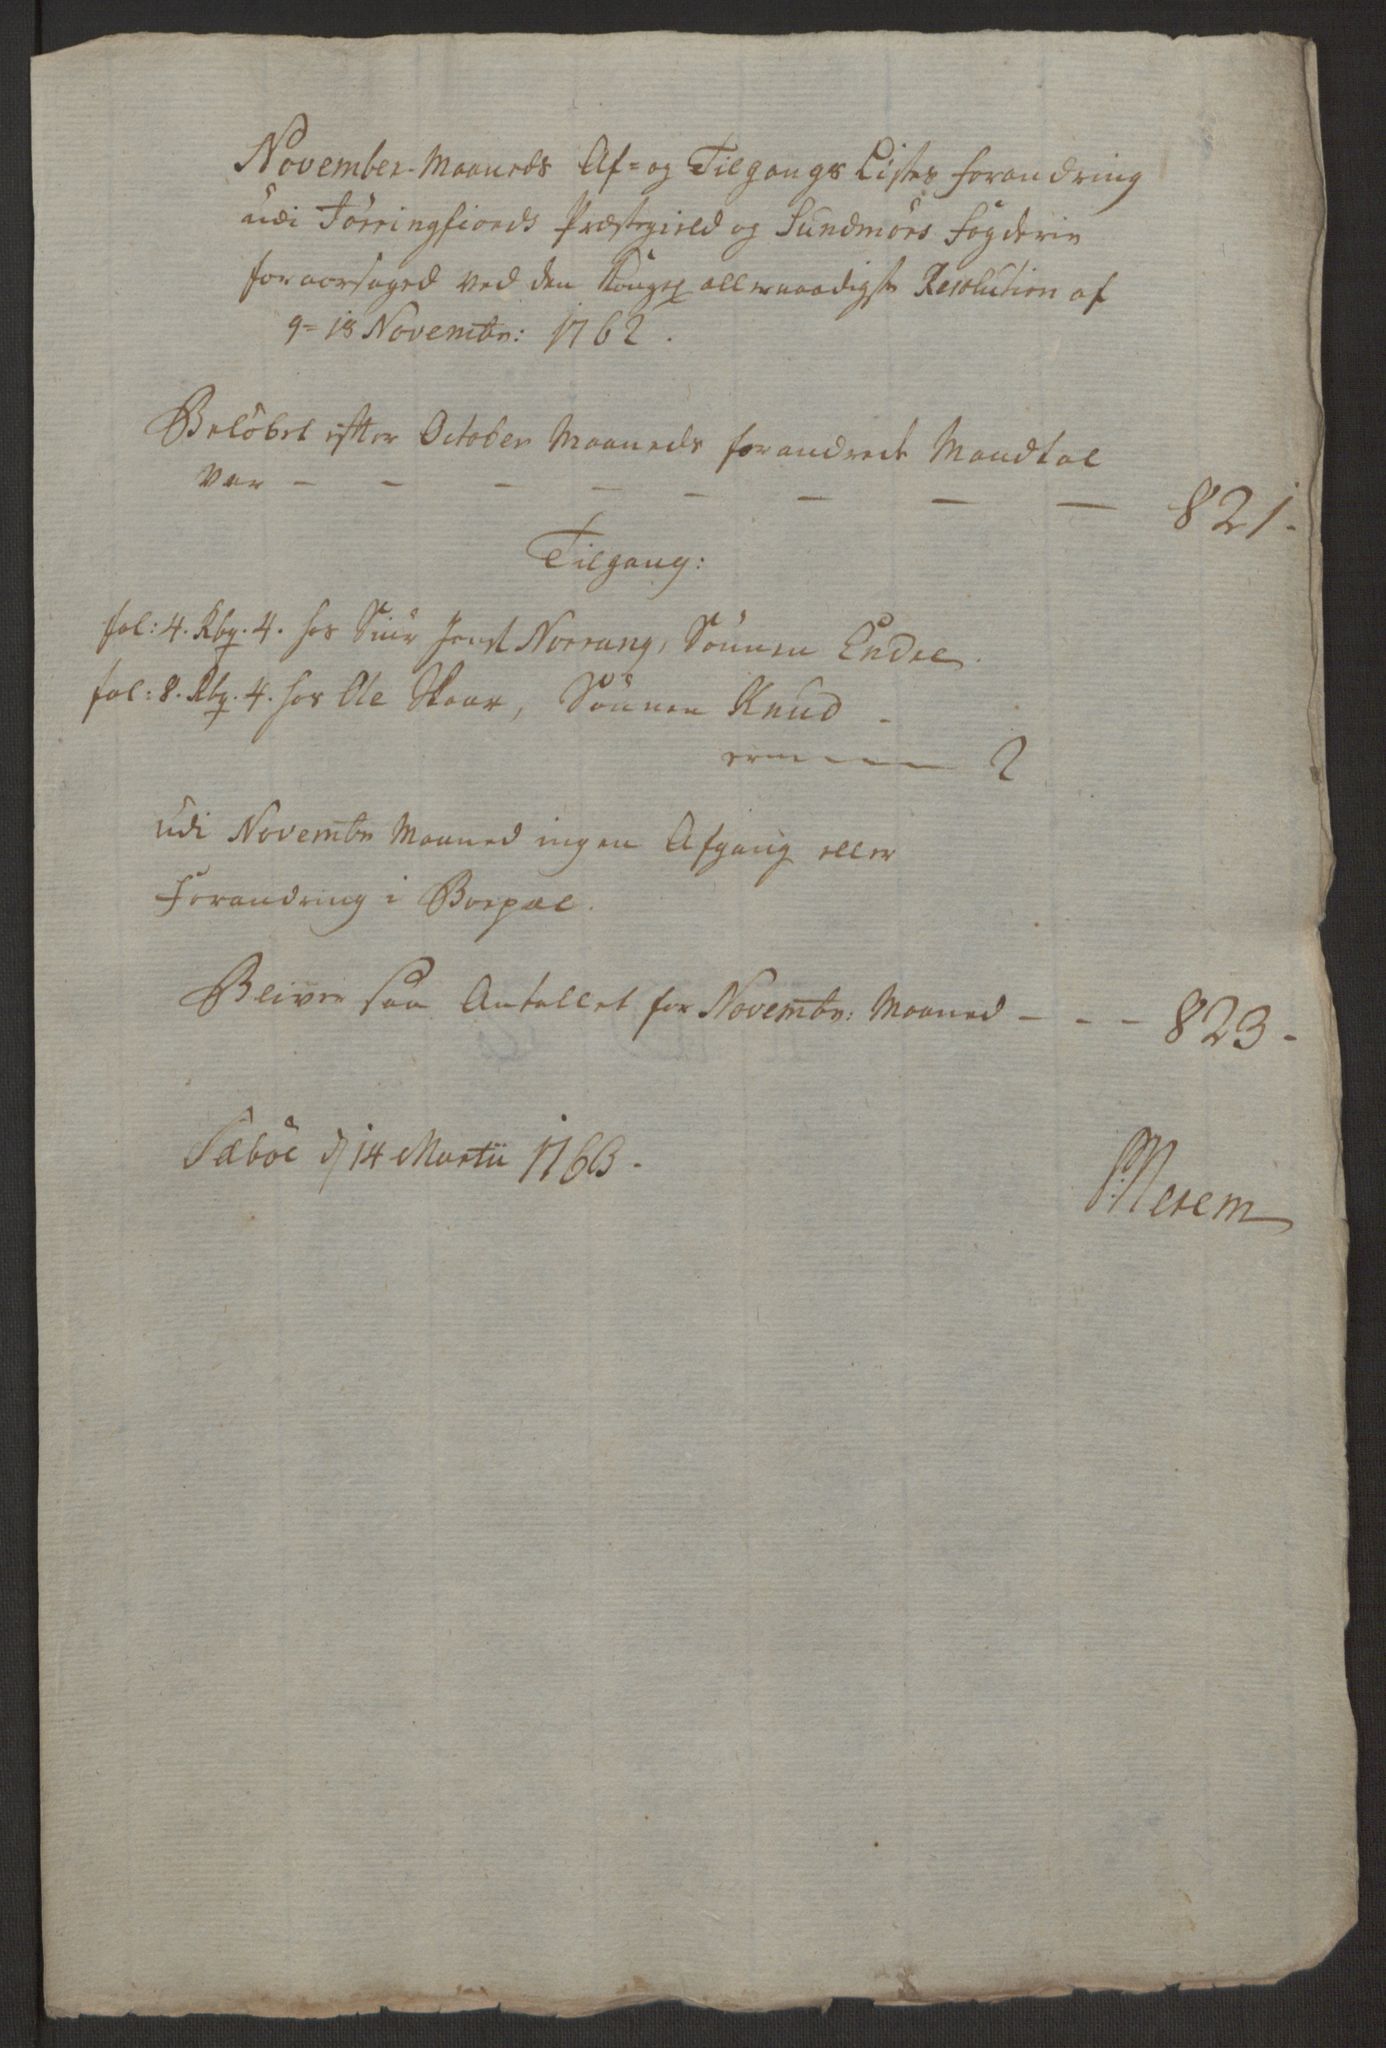 November-Maaneds Af= og Tilgangs Listes forandring
udi Jørringfiords Præstegield og Sundmörs Fogderie
foraarsaged ved den Kongel allernaadigste Resolution af
9= 18 Novembr: 1762.
Belöbet efter October Maaneds forandrede Mandtal
var — — — — — — — — 821.
Tilgang:
fol: 4. Rbq. 4. hos Siur Norrang, Sönnen Endre.
fol: 8. Rbq. 4. hos Ole Skaar, Sönnen Knud -
er — — — — 2
udi Novembr Maaned ingen Afgang eller
Forandring i Boepæl.
Bliver saa Antallet for Novembr: Maaned - - - 823 -
Sæböe d 14 Martii 1763.